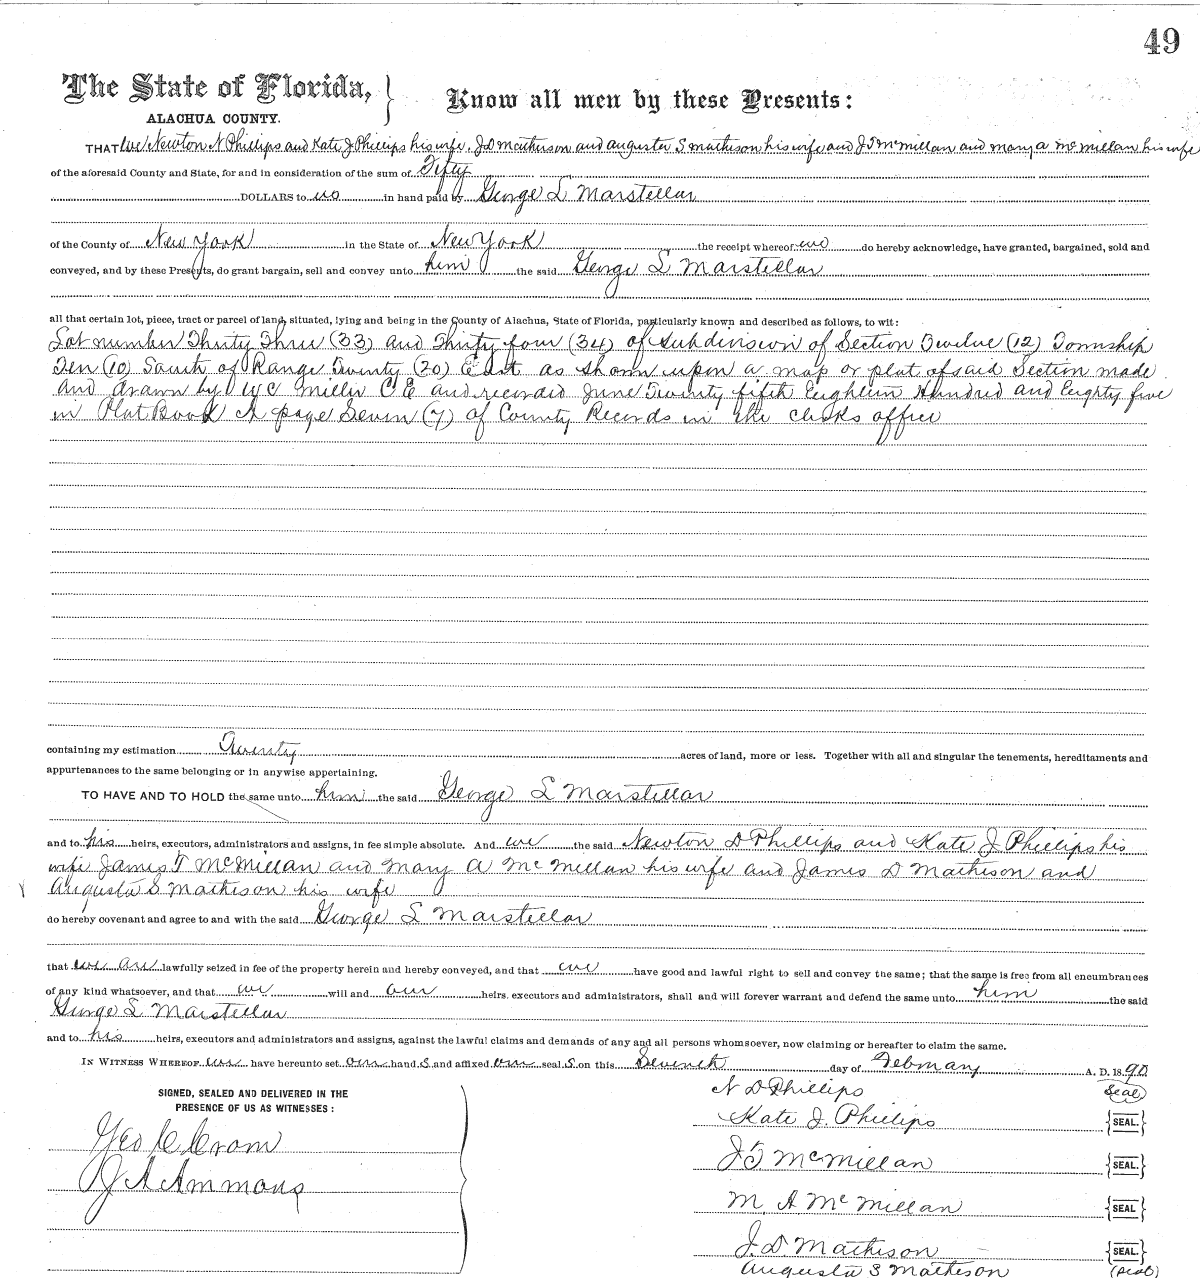 49
The State of Florida, } Know all men by these Presents:
ALACHUA COUNTY.
THAT We Newton N Phillips and Kate J Phillips his wife. J D Matheson and Augusta S Matheson his wife and J T McMillan and Mary A McMillan his wife
of the aforesaid County and State, for and in consideration of the sum of Fifty
DOLLARS to us in hand paid by George L Marstellar
of the County of New York in the State of New York the receipt whereof we do hereby acknowledge, have granted, bargained, sold and
conveyed, and by these Presents, do grant bargain, sell and convey unto him the said George L Marstellar
all that certain lot, piece, tract or parcel of land, situated, lying and being in the County of Alachua, State of Florida, particularly known and described as follows, to wit:
Lot number Thirty Three (33) and Thirty four (34) of Subdivision of Section Twelve (12) Township
Ten (10) South of Range Twenty (20) East as shown upon a map or plat of said Section made
and drawn by W C Miller C E and record June Twenty fifth Eighteen Hundred and Eighty five
in Plat Book A page Seven (7) of County Records in the clerks office
containing my estimation Twenty acres of land, more or less. Together with all and singular the tenements, hereditaments and
appurtenances to the same belonging or in anywise appertaining.
TO HAVE AND TO HOLD the same unto him the said George L Marstellar
and to his heirs, executors, administrators and assigns, in fee simple absolute. And we the said Newton D Phillips and Kate J Phillips his
wife James T McMillan and Mary A McMillan his wife and James D Matheson and
Augusta S Matheson his wife
do hereby covenant and agree to and with the said George L Marstellar
that we are lawfully seized in fee of the property herein and hereby conveyed, and that we have good and lawful right to sell and convey the same; that the same is free from all encumbrances
of any kind whatsoever, and that we will and our heirs. executors and administrators, shall and will forever warrant and defend the same unto him the said
George L Marstellar
and to his heirs, executors and administrators and assigns, against the lawful claims and demands of any and all persons whomsoever, now claiming or hereafter to claim the same.
IN WITNESS WHEREOF, we have hereunto set our hand s and affixed our seal s on this Seventh day of February A. D. 1890
SIGNED, SEALED AND DELIVERED IN THE
PRESENCE OF US AS WITNESSES:
Geo C Crom
J A Ammons
N D Phillips Seal
Kate J. Phillips {SEAL.}
J T McMillan {SEAL.}
M A McMillan {SEAL}
J. D Matheson {SEAL.}
Augusta S Matheson (Seal)